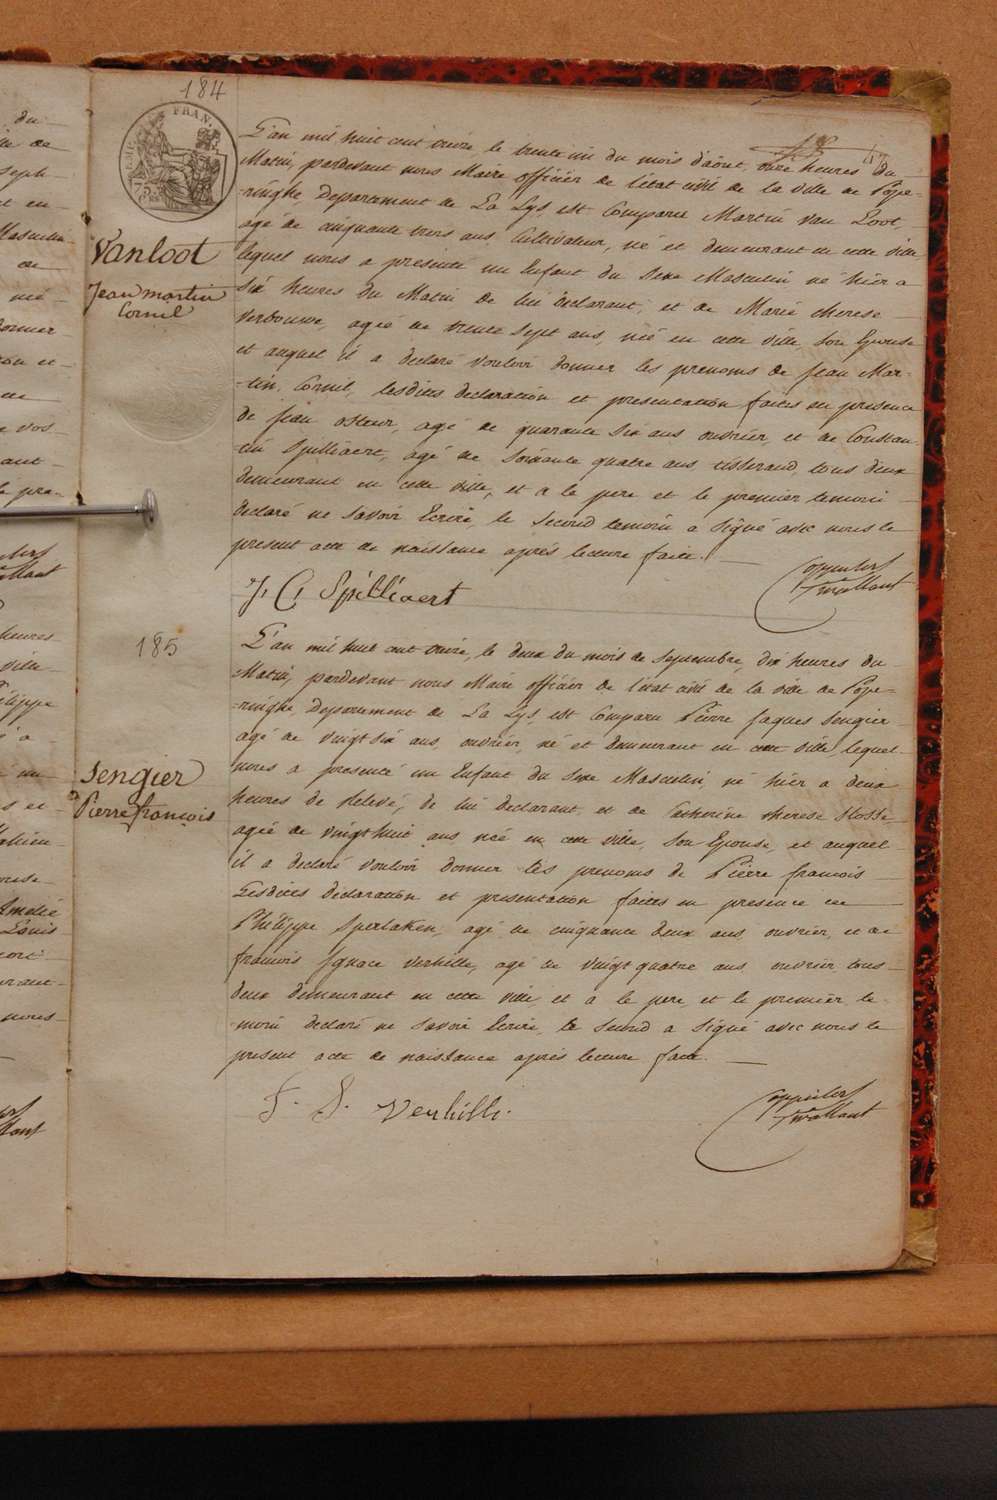 184
Vanloot
Jean martin
Cornil
L'an mil huit cent treize le trente un du mois d'aout, onze heures du
Matin, pardevant nous Maire officier de l'etat civil de la ville de Pope-
-ringhe, departement de La Lys, est Comparu Martin van Loot,
agé de cinquante trois ans Cultivateur, né et demeurant en cette ville
lequel nous a presenté un Enfant du Sexe Masculin né hier a
Six heures du Matin de lui declarant, et de Marie therese
Verbouwe, agée de trente Sept ans, née en cette ville, Son Epouse
et auquel il a declaré vouloir donner les prenoms de Jean Mar-
-tin, Cornil, lesdites declaration et presentation faites en presence
de Jean osteur, agé de quarante Six ans ouvrier, et de Constan-
tin Spilliaert, agé de Soixante quatre ans tisserand, tous deux
demeurant en cette ville, et a le pere et le premier temoin
declaré ne Savoir Ecrire, le Second temoin a Signé avec nous le
present acte de naissance aprés lecture faite.
J, C, Spilliaert
185
Sengier
Pierre françois
L'an mil huit cent treize, le deux du mois de Septembre, dix heures du
Matin, pardevant nous Maire officier de l'etat civil de la ville de Pope-
-ringhe, departement de La Lys, est Comparu Pierre Jaques Sengier
agé de vingt Six ans, ouvrier, né et demeurant en cette ville, lequel
nous a presenté un Enfant du Sexe Masculin, né hier a deux
heures de Relevé, de lui declarant, et de Catherine therese Slosse
agée de vingt huit ans née en cette ville, Son Epouse, et auquel
il a declaré vouloir donner les prenoms de Pierre francois
Lesdites declaration et presentation faites en presence de
Philippe Sperlaken, agé de cinquante deux ans ouvrier, et de
francois Ignace Verhille, agé de vingt quatre ans, ouvrier, tous
deux demeurant en cette ville, et a le pere, et le premier te
moin declaré ne Savoir Ecrire, le Second a Signé avec nous le
present acte de naissance aprés lecture faite.
F. J. Verhille.